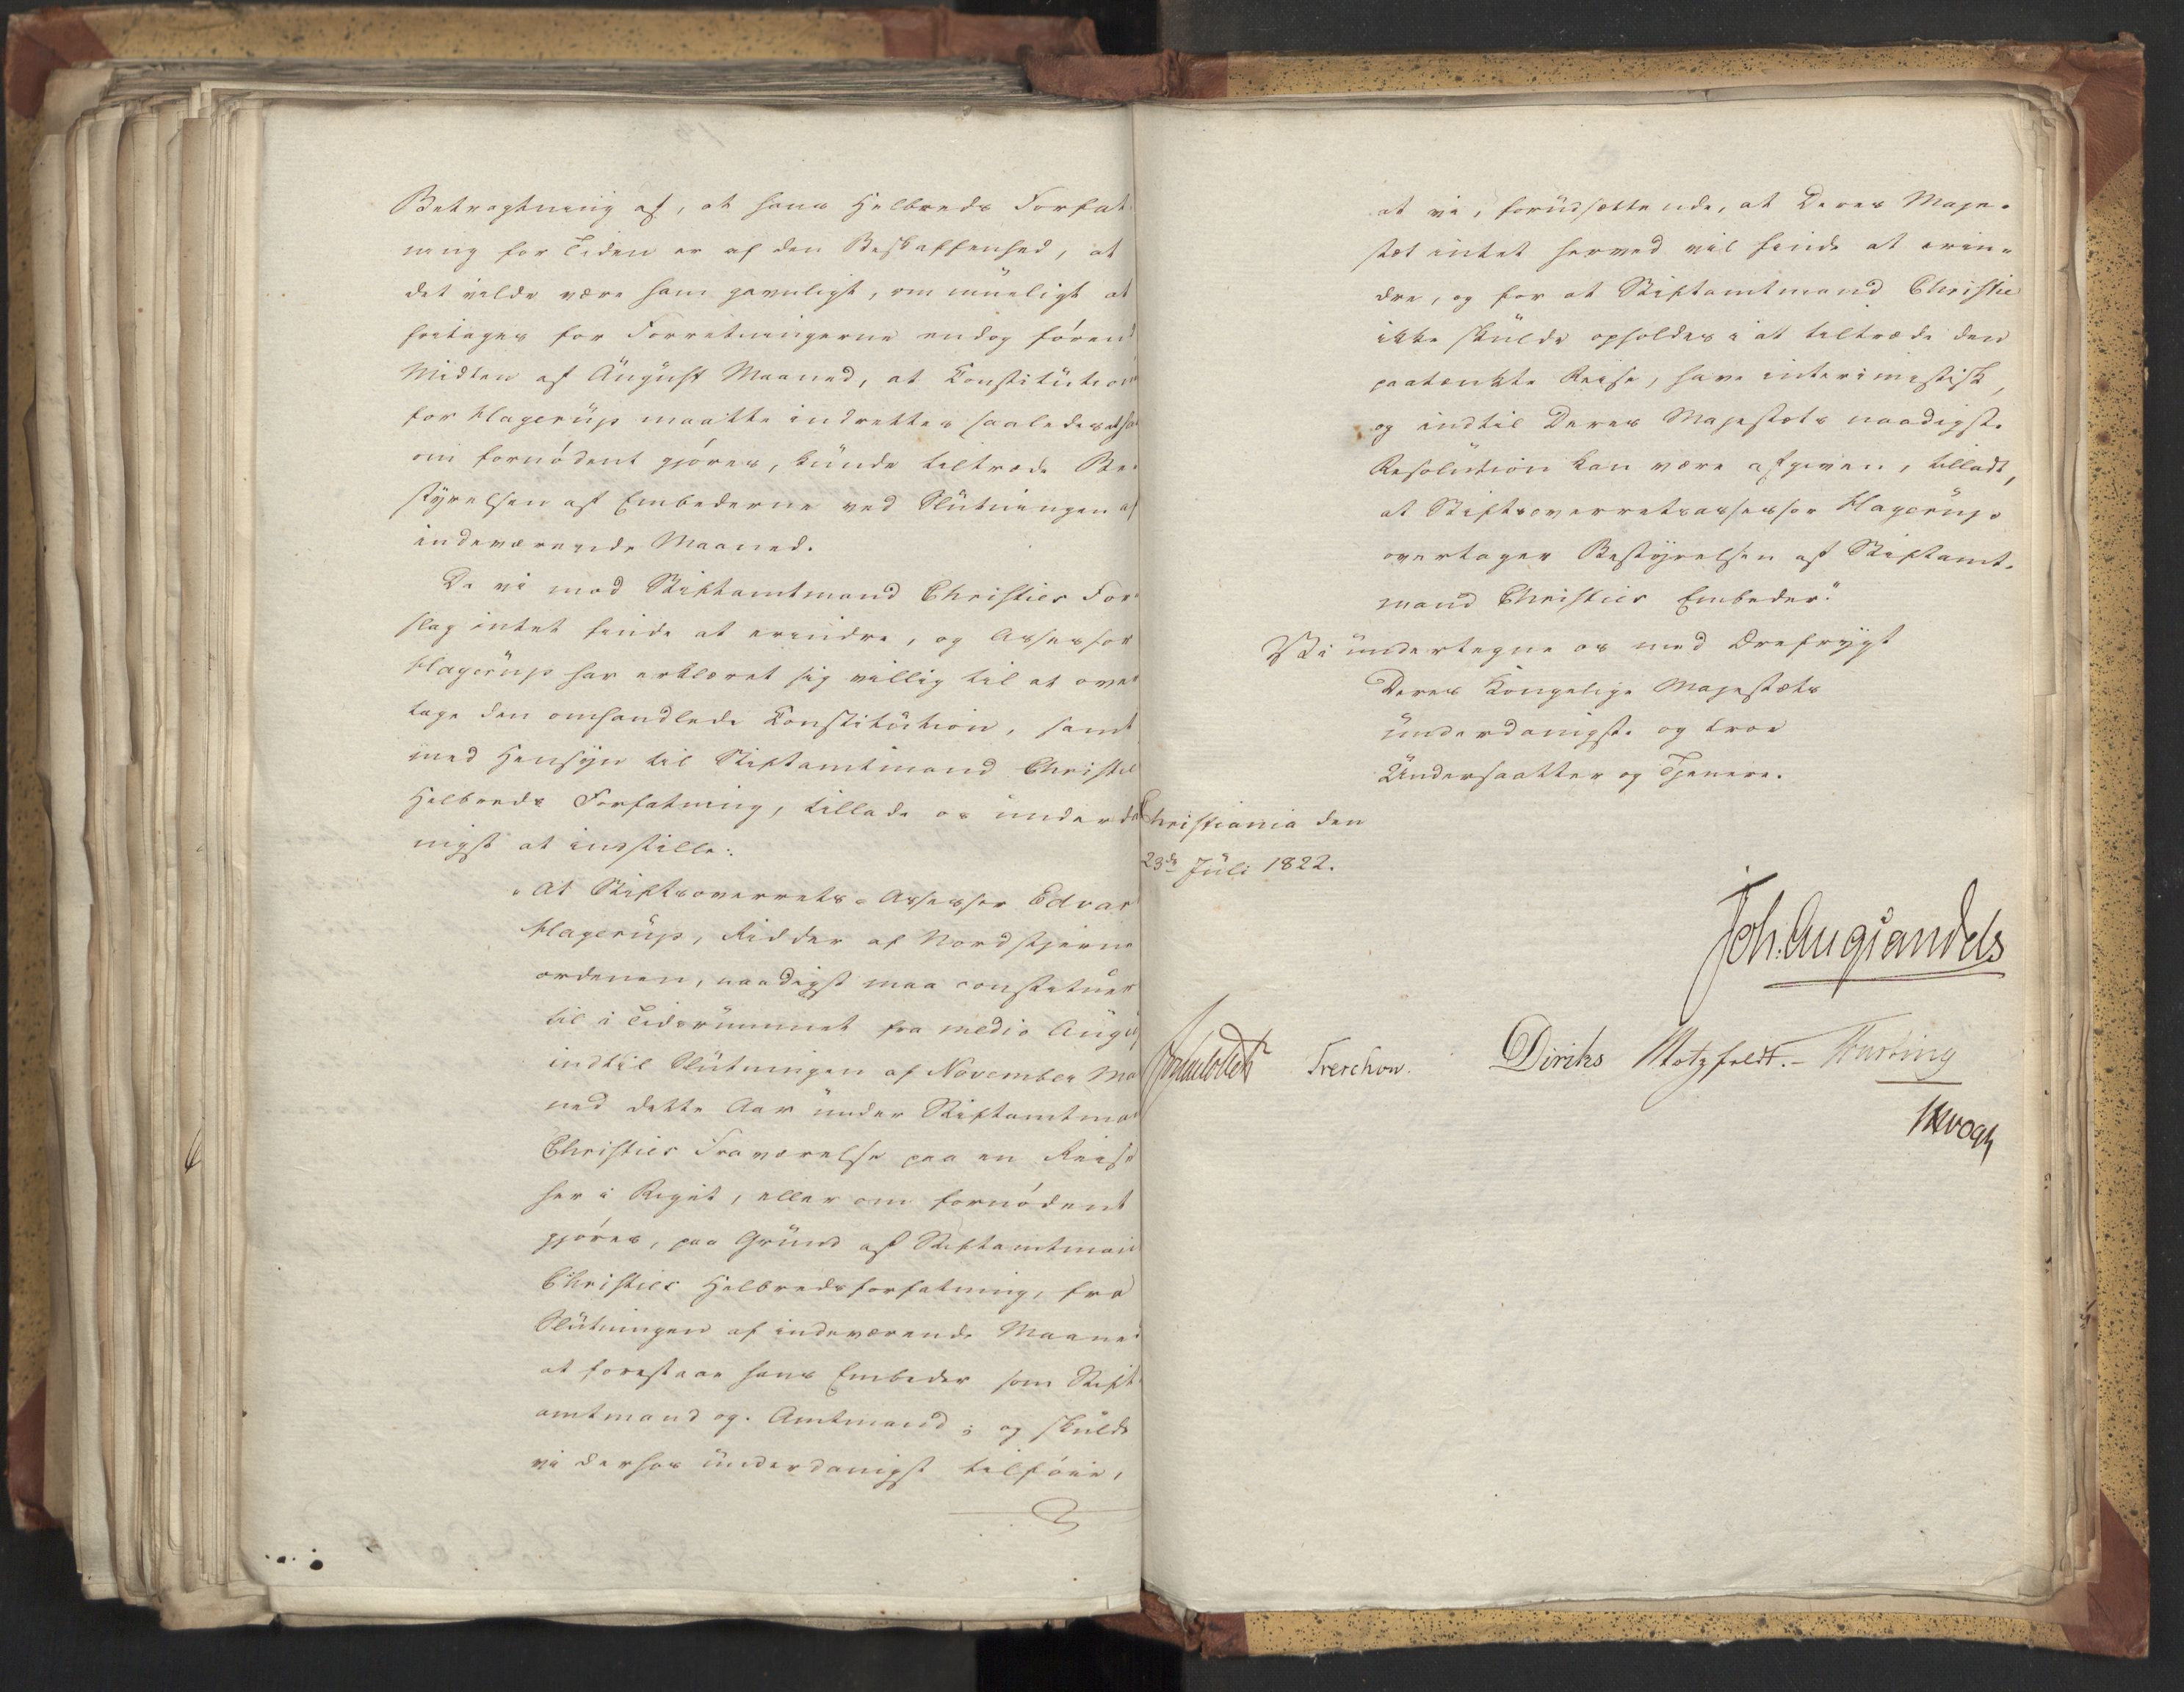 Betragtning af, at hans Helbreds Forfat-
ning for Tiden er af den Beskaffenhed, at
det vilde være ham gavnligt, om mueligt at
fritages for Forretningerne endog förend
Midten af August Maaned, at Constitution
for Hagerup maatte indrettes saaledes at han
om fornödent gjöres, kunde tiltræde Be-
styrelsen af Embederne ved Slutningen af
indeværende Maaned.
Da vi mod Stiftamtmand Christies For-
slag intet finde at erindre, og Assessor
Hagerup har erklæret sig villig til at over
tage den omhandlede Constitution, samt
med Hensyn til Stiftamtmand Christies
Helbreds Forfatning, tillade os underda
nigst at indstille:
"At Stiftsoverrets-Assessor Edvar
Hagerup, Ridder af Nordstjerne
ordenen, naadigst maa constitueres
til i Tidsrummet fra medio Augus
indtil Slutningen af November Ma
ned dette Aar under Stiftamtmand
Christies Fraværelse paa en Reise
her i Riget, eller om fornödent
gjöres, paa Grund af Stiftamtmand
Christies Helbredsforfatning, fra
Slutningen af indeværende Maaned
at forestaae hans Embeder som Stift
amtmand og Amtmand; og skulde
vi derhos underdanigst tilföie,
at vi, forudsættende, at Deres Maje-
stæt intet herved vil finde at erin-
dre, og for at Stiftamtmand Christie
ikke skulde opholdes i at tiltræde den
paatænkte Reise, have interimistisk,
og indtil Deres Majestæts naadigste
Resolution kan være afgiven, tilladt,
at Stiftsoverretsassessor Hagerup
overtager Bestyrelsen af Stiftamt-
mand Christies Embeder."
Vi undertegne os med Ærefrygt
Deres Kongelige Majestæts
underdanigste og troe
Undersaatter og Tjenere.
Christiania den
23de Juli 1822.
Joh: Aug Sandels
Sommerhielm Treschow. Diriks Motzfeldt.- Fasting
Krogh